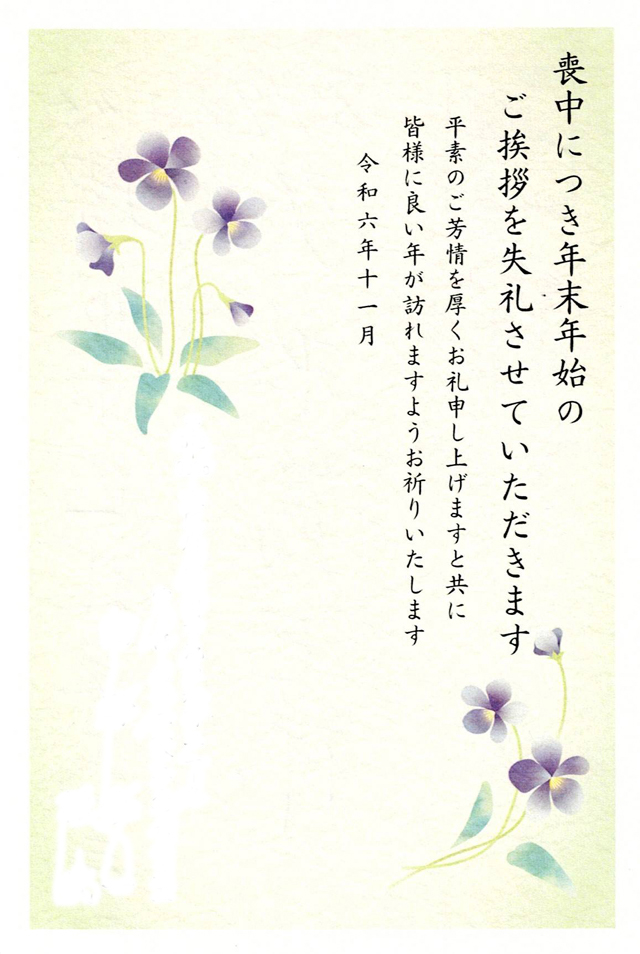 喪中につき年末年始の
ご挨拶を失礼させていただきます
平素のご芳情を厚くお礼申し上げますと共に
皆様に良い年が訪れますようお祈りいたします
令和六年十一月